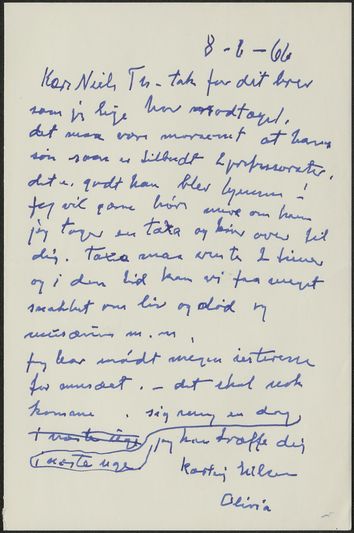 8-6-66
Kære Niels Th - tak for det brev
som jeg lige har modtaget.
det maa være morsomt at have en
søn som er tilbudt 2 professorater.
det er godt han blev hjemme!
Jeg vil gerne høre mere om ham
jeg tager en taxa og kører over til
dig. taxa maa vente 2 timer
og i den tid kan vi faa meget
snakket om liv og død og
museum m.m.
Jeg har mødt megen interesse
for museet. - det skal nok
komme. sig mig en dag
i næste uge
i næste uge, jeg kan træffe dig
Olivia